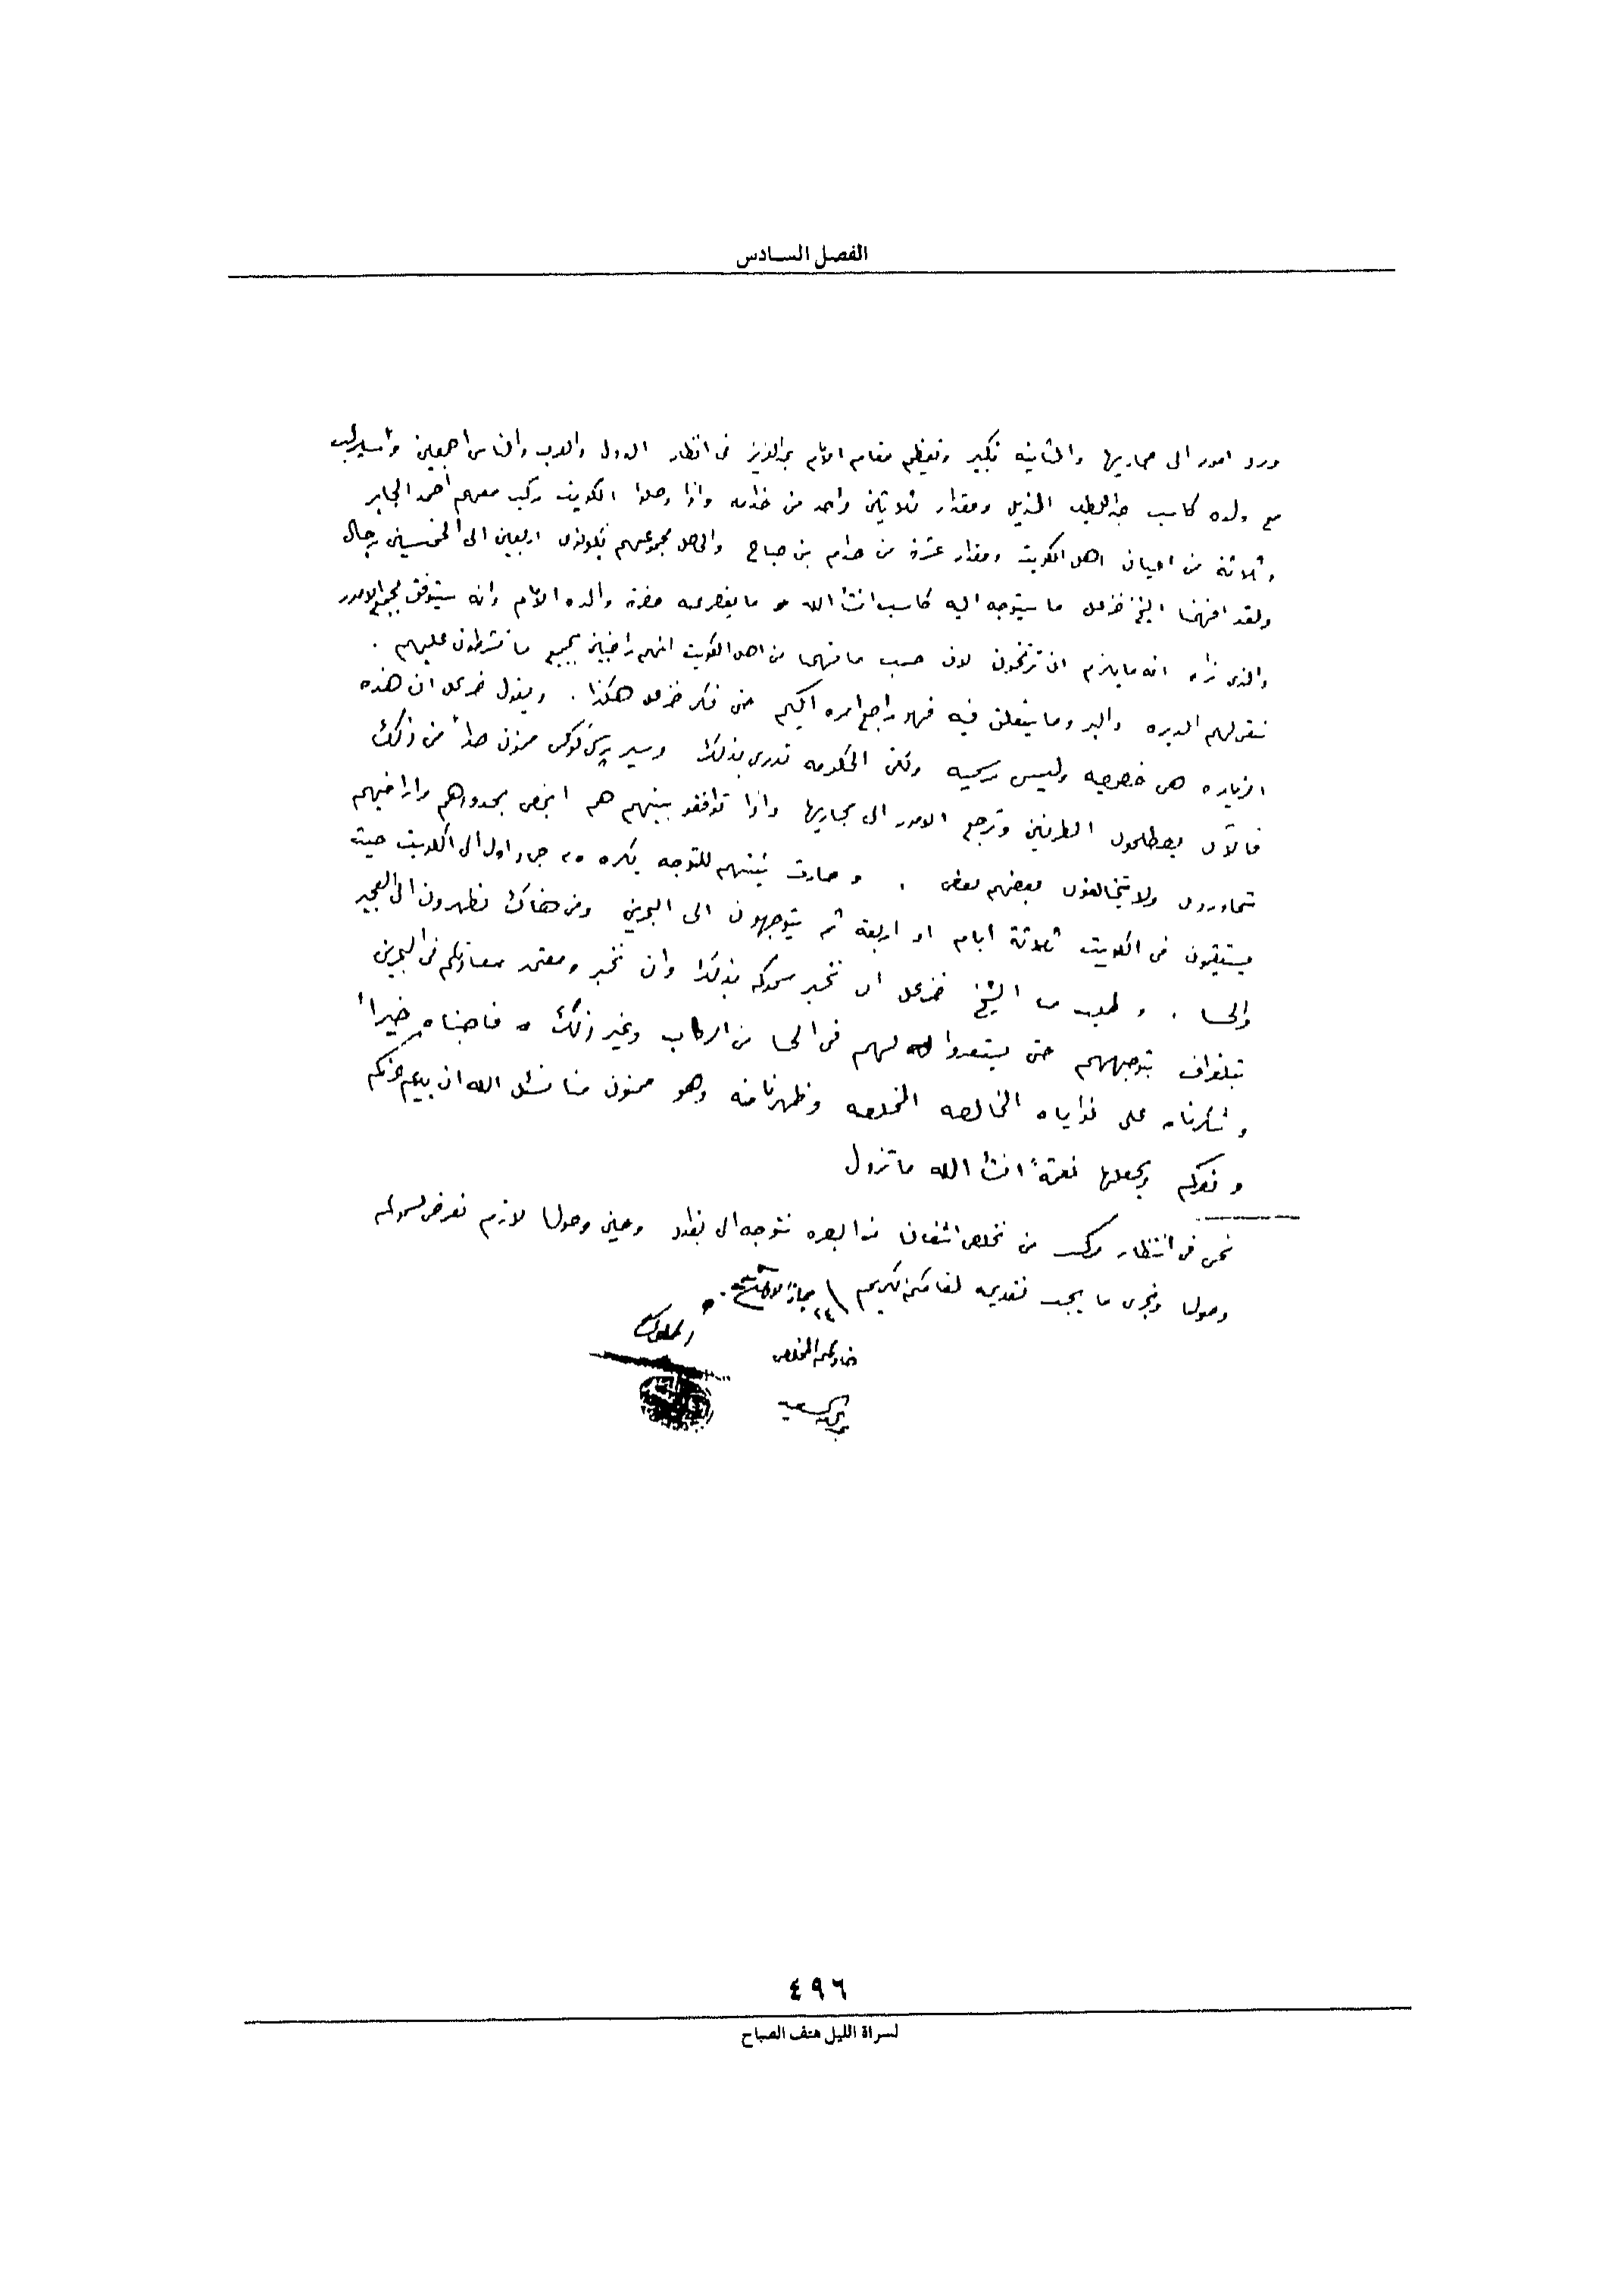 الفصل السادس
ورد امور الى مجاريها والثانيه تكبير وتعظيم مقام الامام عبدالعزيز فى انظار الدول والعرب والناس اجمعين وسيركب
مع ولده كاسب عبداللطيف المنديل ومقدار ثلاثين واحد من خدامه واذا وصلوا الكويت ركب معهم احمد الجابر
وثلاثة من اعيان اهل الكويت ومقدار عشرة من خدام بن صباح والحاصل مجموعهم يكونون اربعين الى الخمسين رجال
ولقد افهمنا الشيخ خزعل ما سيتوجه اليه كاسب انشا الله ما يغضى حضرة والده الامام وانه سيتوفق بجميع الامور
والذى نراه انه مايلزم ان ترتخون لان حسب ما فهمنا من اهل الكويت انهم راضين بجميع ما تشرطون عليهم .
نقر لهم الديره والبر وما يتعلق فيه فهو راجع امره اليكم حتى فكر خزعل هكذا . ويقول خزعل ان هذه
الزياره هى خصوصيه وليس رسميه ولكن الحكومه تدرى بذلك وسير پرسى كوكس ممنون جداً من ذلك
فالآن يصطلحون الطرفين وترجع الامور الى مجاريها واذا توافقو بينهم هم ابخص بحدودهم واراضيهم
يتحاورون ولا يتخالفون بعضهم بعض . وصارت نيتهم للتوجه بكره ٢٥ جماد اول الى الكويت حيث
يستقيمون فى الكويت ثلاثة ايام او اربعة ثم يتوجهون الى البحرين ومن هناك يظهرون الى العجير
والحسا . وطلب منا الشيخ خزعل ان نخبر سموكم بذلك وان نخبر معتمد سعادتكم فى البحرين
تبلغراف بتوجههم حتى يستعدوا لهم فى الحسا من الركاب وغير ذلك فاجبناه خيراً
وشكرناه على نواياه الخالصه المخلصه وظهرنا منه وهو ممنون منا نسئل الله ان يديم عزكم
ونفوذكم ويجعلها نعمةً انشا الله ما تزول
نحن فى انتظار مركب من نخلص اشغالنا من البصره نتوجه الى بغداد وحين وصولنا لازم نعرض لسموكم
وصولنا ونجرى ما يجب تقديمه لمقامكم الكريم ٢٤
المملوك
خادمكم المخلص
٤٩٦
لسراة الليل هتف الصباح